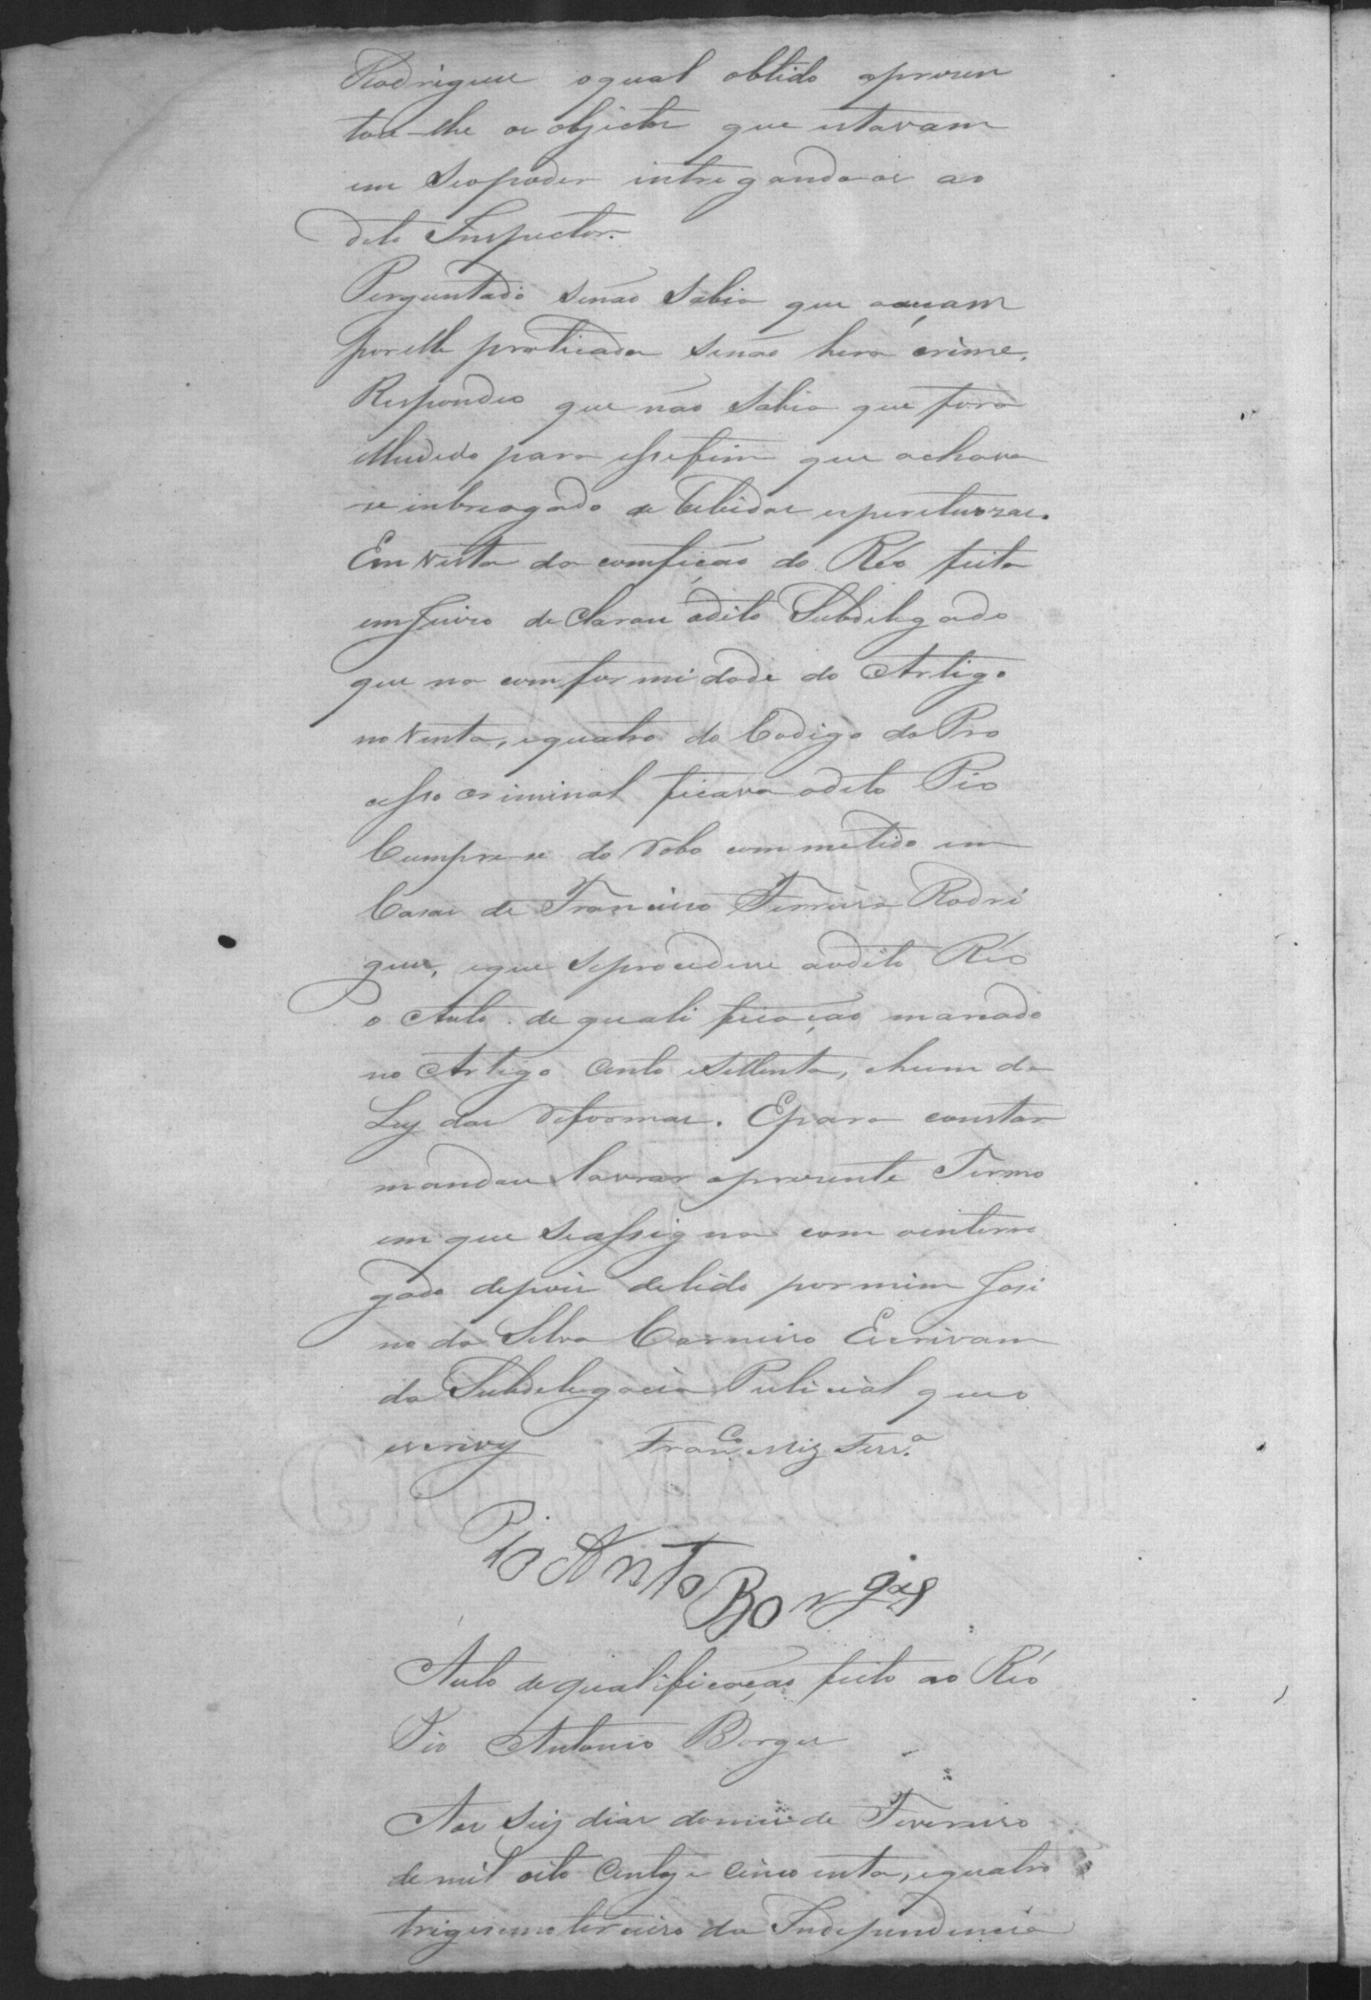 Rodrigues oqual obtido aprezen
tou-lhe os objectos que estavam
em Seopoder intregandoos ao
dito Inspector.
Perguntado senão Sabia que acçam
porelle praticada senão hera crime.
Respondeo que não Sabia que fora
elludido para essefim que achava
se inbreagado de bebidas espirituozas.
Em vista da comfição do Réo feita
emJuizo declarou odito Subdelegado
que na comformidade do Artigo
noventa, equatro do Codigo do Pro
cesso criminal ficava odito Pio
Cumprese do robo commetido em
Casas de Francisco Ferreira Rodri
gues, eque seprocedesse aodito Réo
o Auto de qualificação marcado
no Artigo Cento esettenta, ehum da
Ley das reformas. Epara constar
mandou lavrar oprezente Termo
em que Seassigna com ointerro
gado depois delido pormim Josi
no da Silva Carneiro Escrivam
da Subdelegacia Pulicial queo
escrevy Franco Miz Ferra
Pio Anto Borges
Auto dequalificação feito ao Réo
Pio Antonio Borges
Aos Seis dias domes de Fevereiro
de mil oito Centos e Cincoenta, equatro
trigesimo terceiro da Independencia